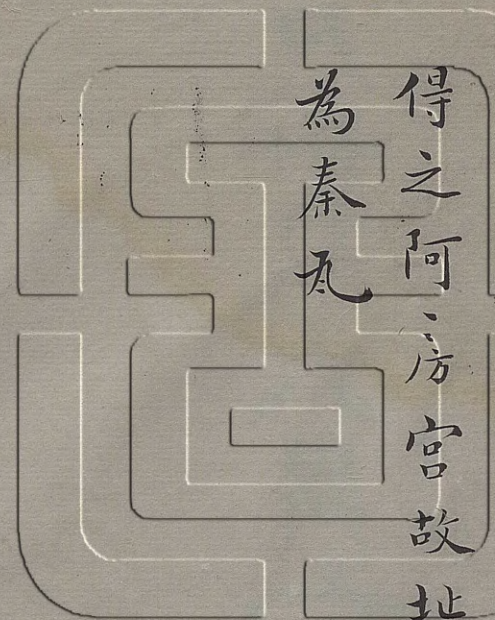 得之阿〻房宮故址
為秦瓦